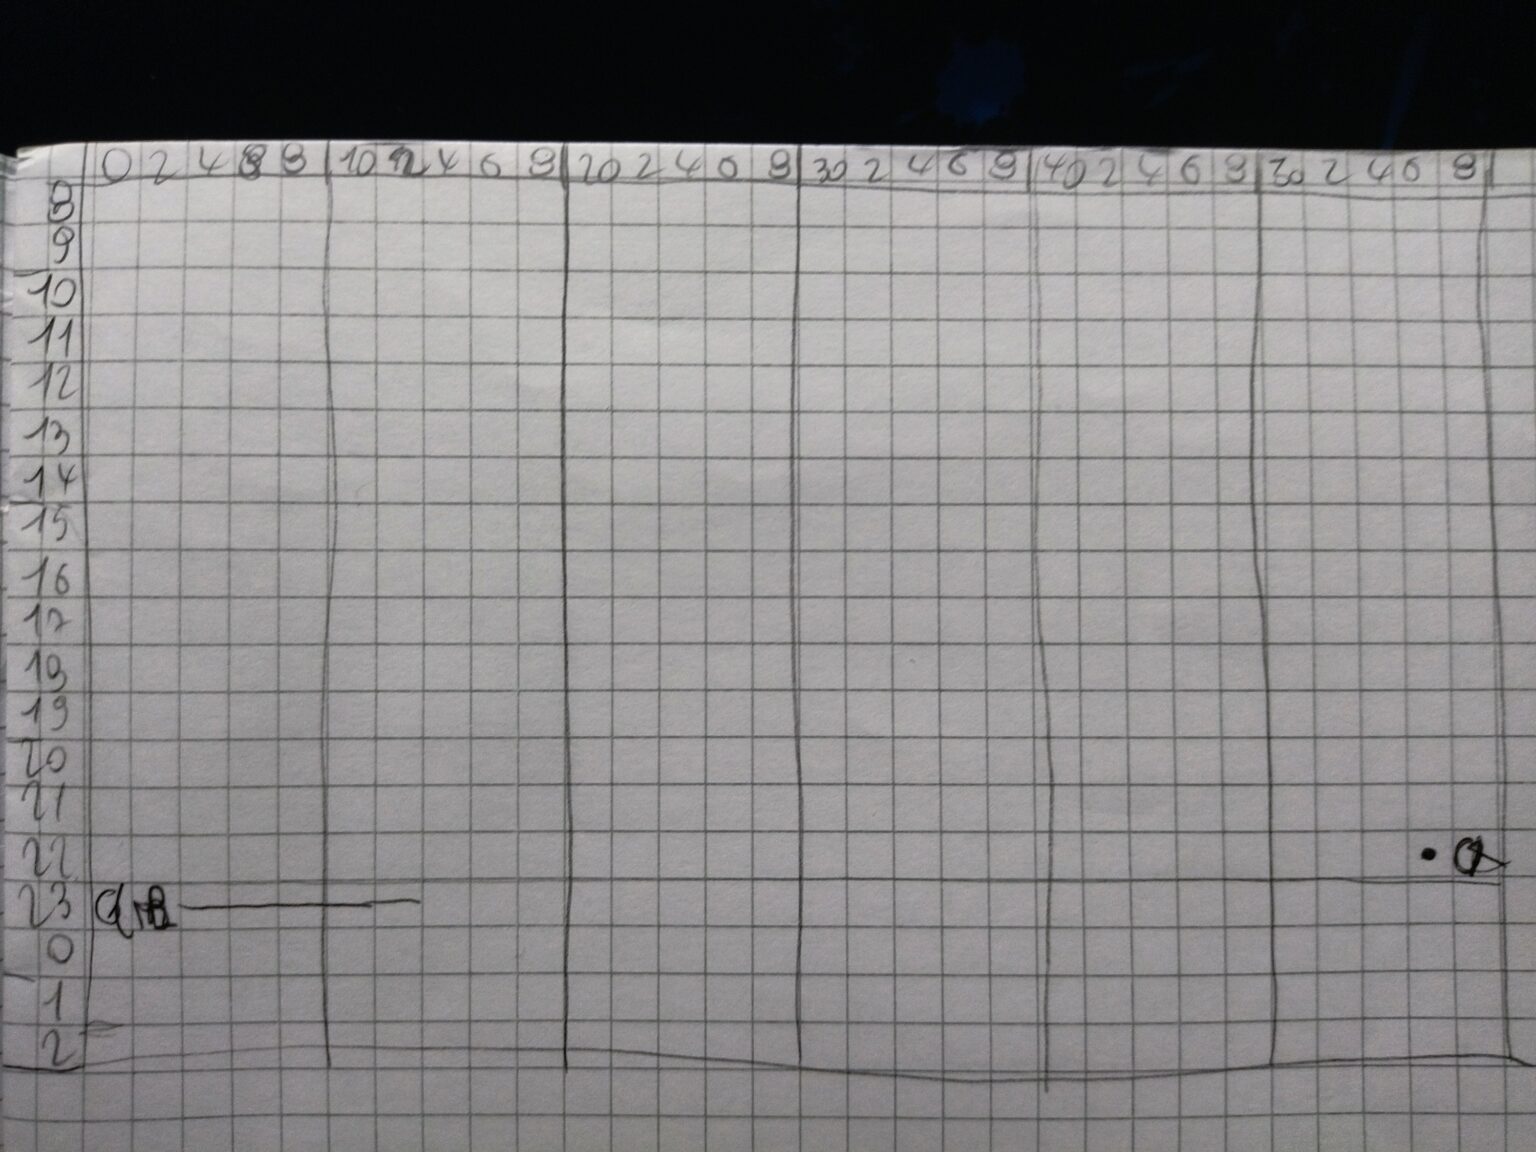 0 2 4 8 8 10 2 4 6 8 20 2 4 6 8 30 2 4 6 8 40 2 4 6 8 30 2 4 6 8
8
9
10
11
12
13
14
15
16
17
18
19
20
21
22
23
0
1
2